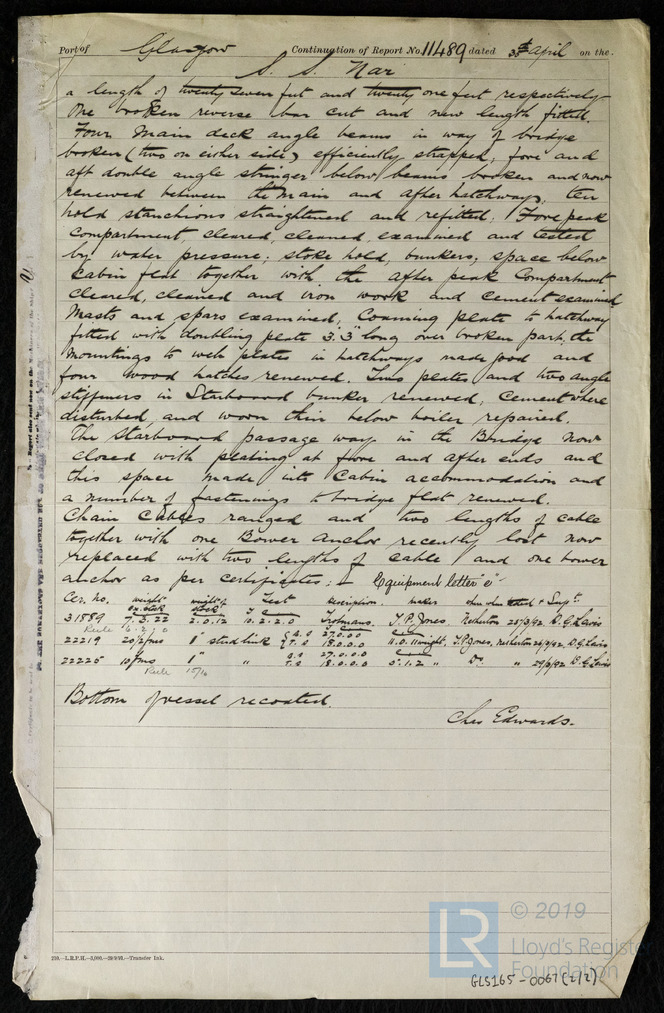 Port of Glasgow Continuation of Report No. 11489 dated 30th April on the.
S. S. Nar
a length of twenty seven feet and twenty one feet respectively
One broken reverse bar cut and new length fitted.
Four Main deck angle beams in way of bridge
broken (two on either side) efficiently strapped; fore and
aft double angle stringer below beams broken and now
renewed between the main and after hatchways; ten
hold stanchions straightened and refitted; Fore peak
Compartment cleared, cleaned, examined and tested
by water pressure; stoke hold, bunkers, space below
Cabin flat together with the after peak Compartment
cleared, cleaned and iron work and cement examined
Masts and spars examined; Coaming plate to hatchway
fitted with doubling plate 3'.3" long over broken part, the
mountings to web plates in hatchways made good and
four wood hatches renewed. Two plates and two angle
stiffeners in Starboard bunker renewed; Cement where
disturbed, and worn thin below boiler repaired.
The starboard passage way in the Bridge now
closed with plating at fore and after ends and
this space made into Cabin accommodation and
a number of fastenings to bridge flat renewed.
Chain Cables ranged and two lengths of cable
together with one Bower Anchor recently lost now
replaced with two lengths of cable and one bower
anchor as per certificates; – Equipment letter "e"
Cer. no. weight ex. stock weight of stock Test description. maker
31889 7.3.22 2.0.12 10.2.2.0 Trotmans. J.P. Jones, Netherton 25/3/92 D.G. Lewis
Rule 6.2.0
22219 20 fms 1" stud link 27.0.0.0 18.0.0.0 J.P. Jones, Netherton D.G. Lewis
22225 10 fms 1" " 27.0.0.0 18.0.0.0 5.1.2 " Do. " 29/3/92 D.G. Lewis
Rule 15/16
Bottom of vessel recoated.
Chas Edwards.
210.—L.R.P.H.—3,000.—29/9/91.—Transfer Ink.
LR © 2019
Lloyd's Register
Foundation
GLS165-0067(2/2)